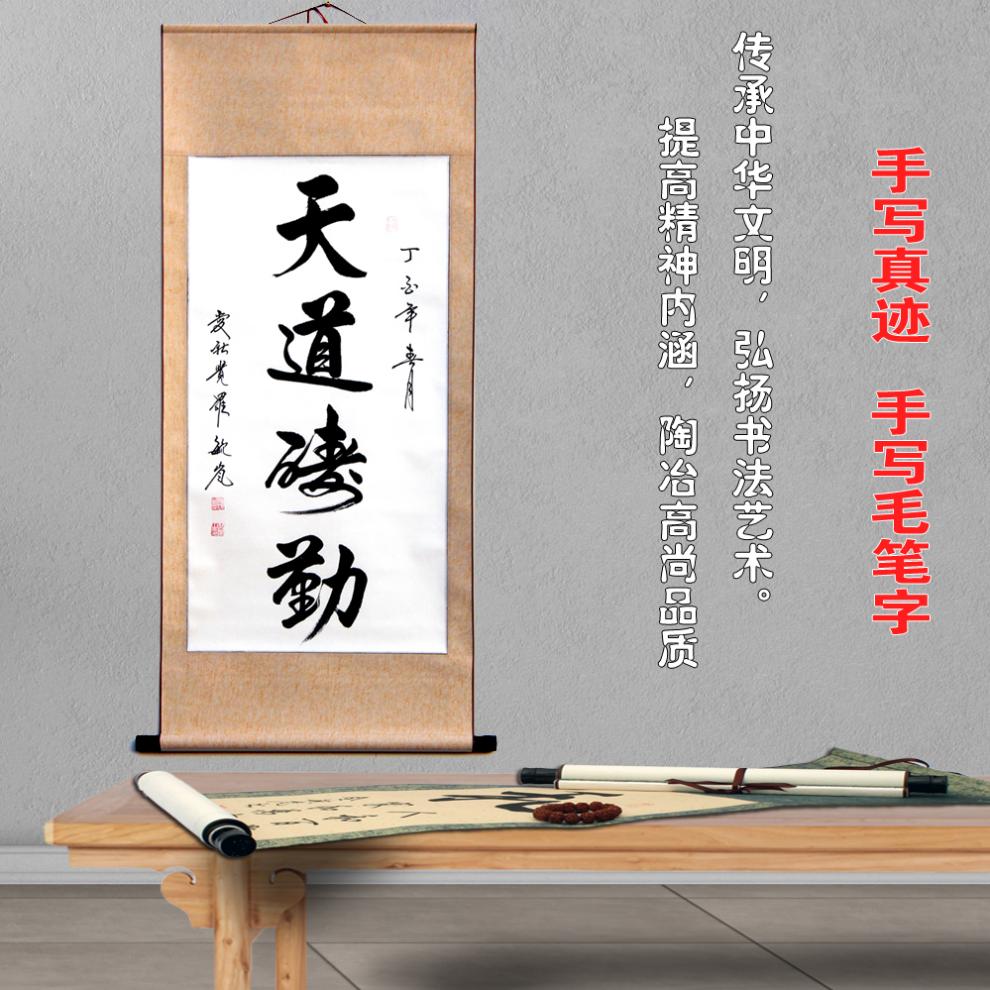 手写真迹 手写毛笔字
传承中华文明，弘扬书法艺术。
提高精神内涵，陶冶高尚品质
丁酉年春月
天道酬勤
爱新觉罗